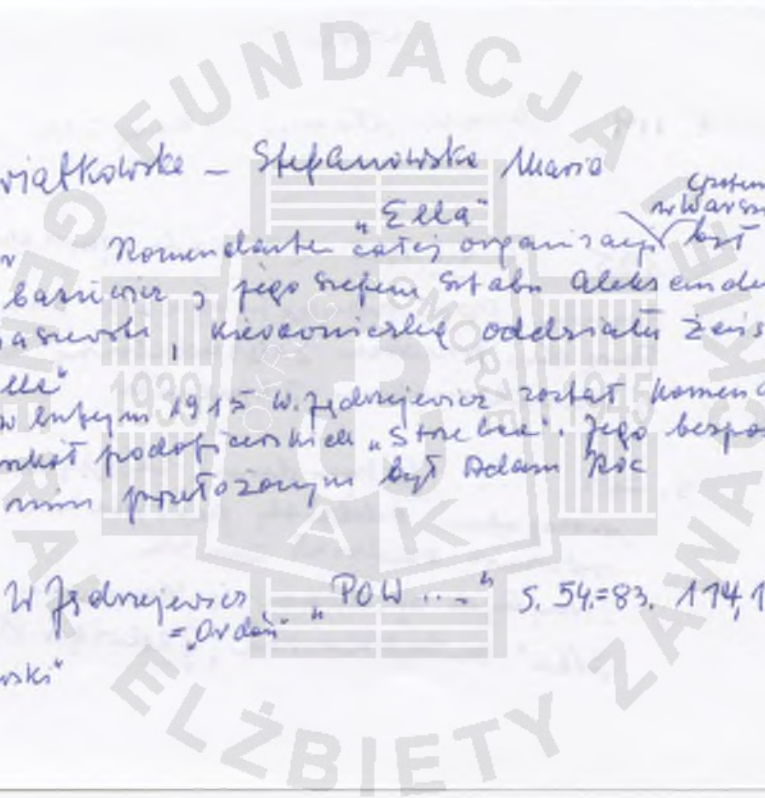 wiątkowska – Stefanowska Maria
"Ella"
w Warsz
Komendantem całej organizacji był
basiewicz, jego szefem sztabu Aleksande
asiewski, kierowniczką oddziału żeńs
ella"
w lutym 1915 W. Jędrzejewicz został komen
szkół podoficerskich "Strzelca". Jego bezpo
nim przełożonym był Adam Koc
W Jędrzejewicz "POW ..." s. 54.=83. 114, 1
= "Ordon"
wski"
FUNDACJA
GENERAŁ
ELŻBIETY ZAWACKIEJ
OKRĘG POMORZE
1939 1945
AK